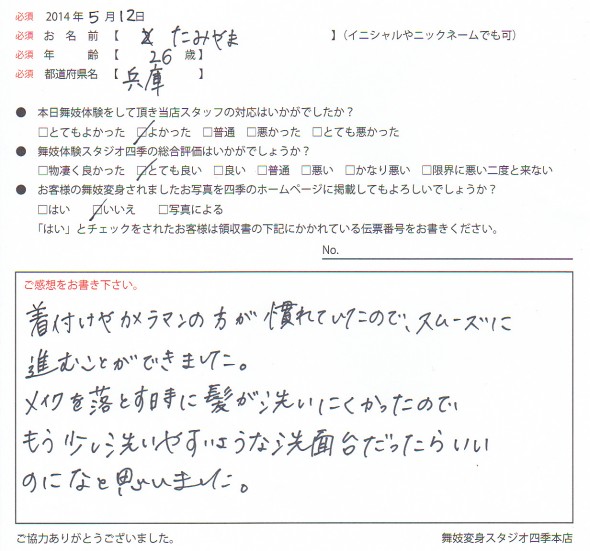 必須 2014年5月12日
必須 お名前【 たみやま 】(イニシャルやニックネームでも可)
必須 年齢【 26 歳】
必須 都道府県名【 兵庫 】
● 本日舞妓体験をして頂き当店スタッフの対応はいかがでしたか?
□とてもよかった □よかった □普通 □悪かった □とても悪かった
● 舞妓体験スタジオ四季の総合評価はいかがでしょうか?
□物凄く良かった □とても良い □良い □普通 □悪い □かなり悪い □限界に悪い二度と来ない
● お客様の舞妓変身されましたお写真を四季のホームページに掲載してもよろしいでしょうか?
□はい □いいえ □写真による
「はい」とチェックをされたお客様は領収書の下記にかかれている伝票番号をお書きください。
No.
ご感想をお書き下さい。
着付けやカメラマンの方が慣れていたので、スムーズに
進むことができました。
メイクを落とす時に髪が洗いにくかったので、
もう少し洗いやすいような洗面台だったらいい
のになと思いました。
ご協力ありがとうございました。 舞妓変身スタジオ四季本店